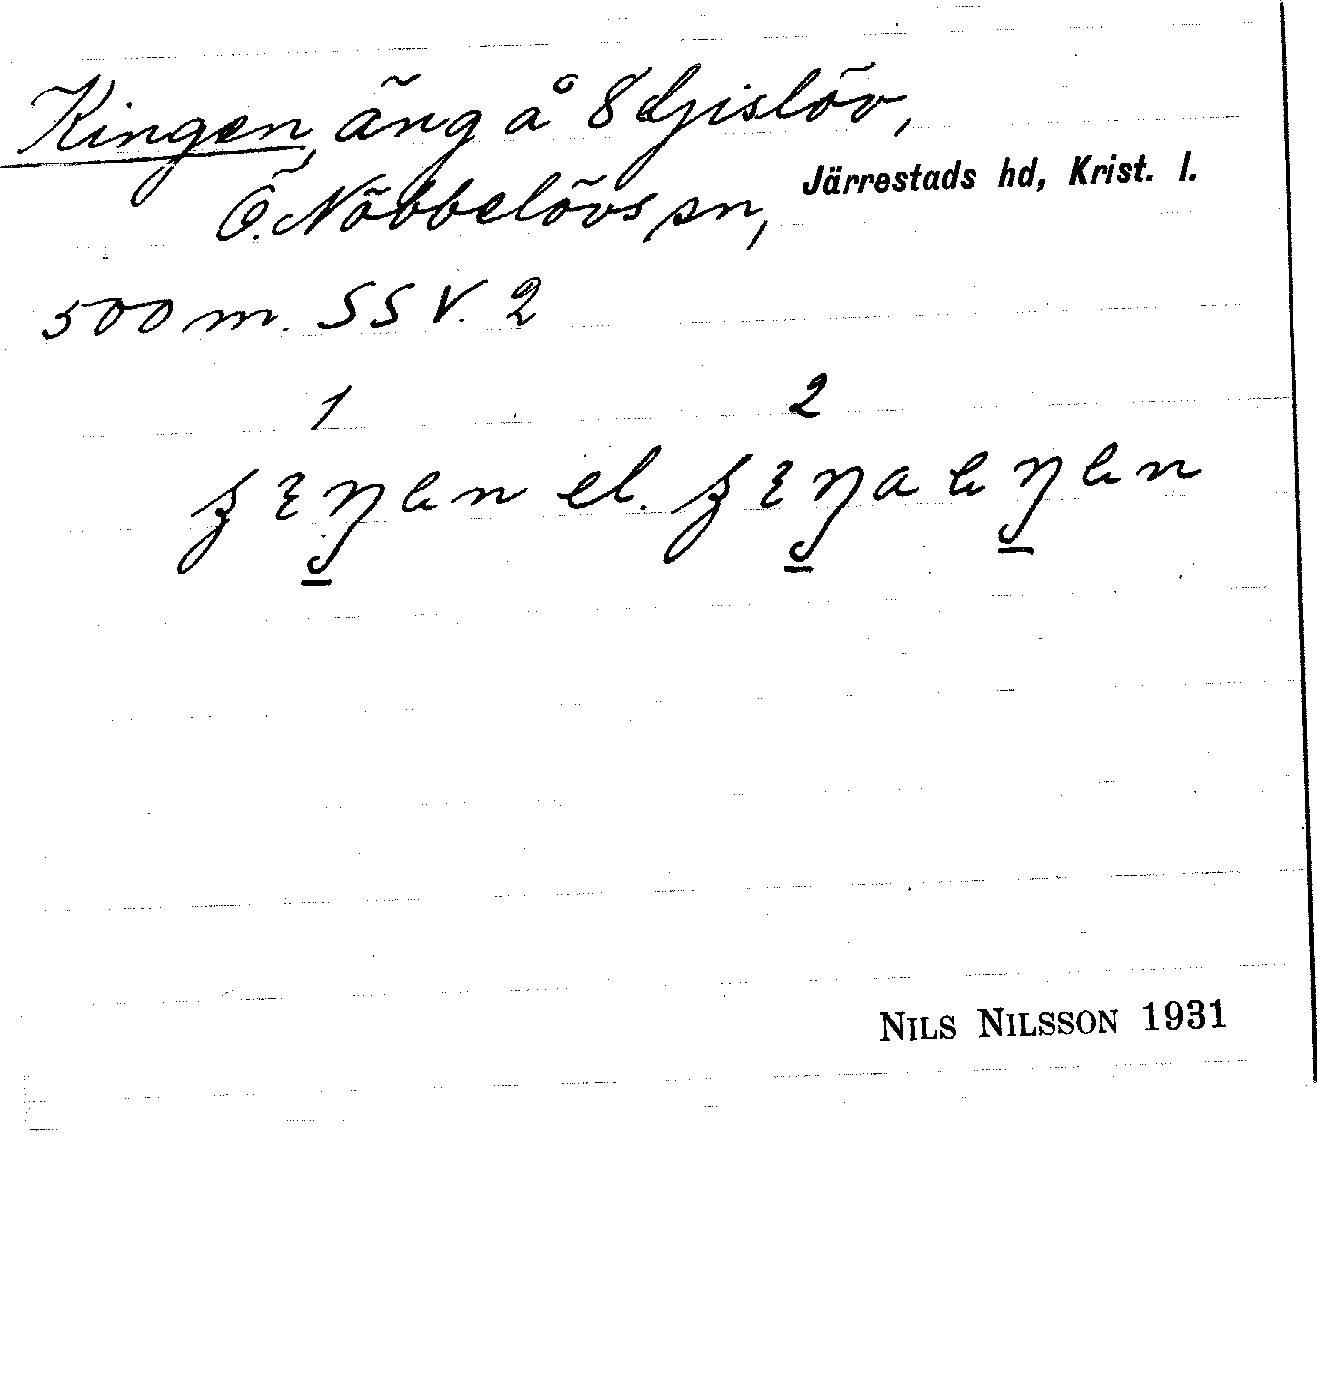 Kingen, äng å 8 Gjislöv,
Ö. Nöbbelövs sn, Järrestads hd, Krist. l.
500 m. SSV. 2
1 2
el.
NILS NILSSON 1931